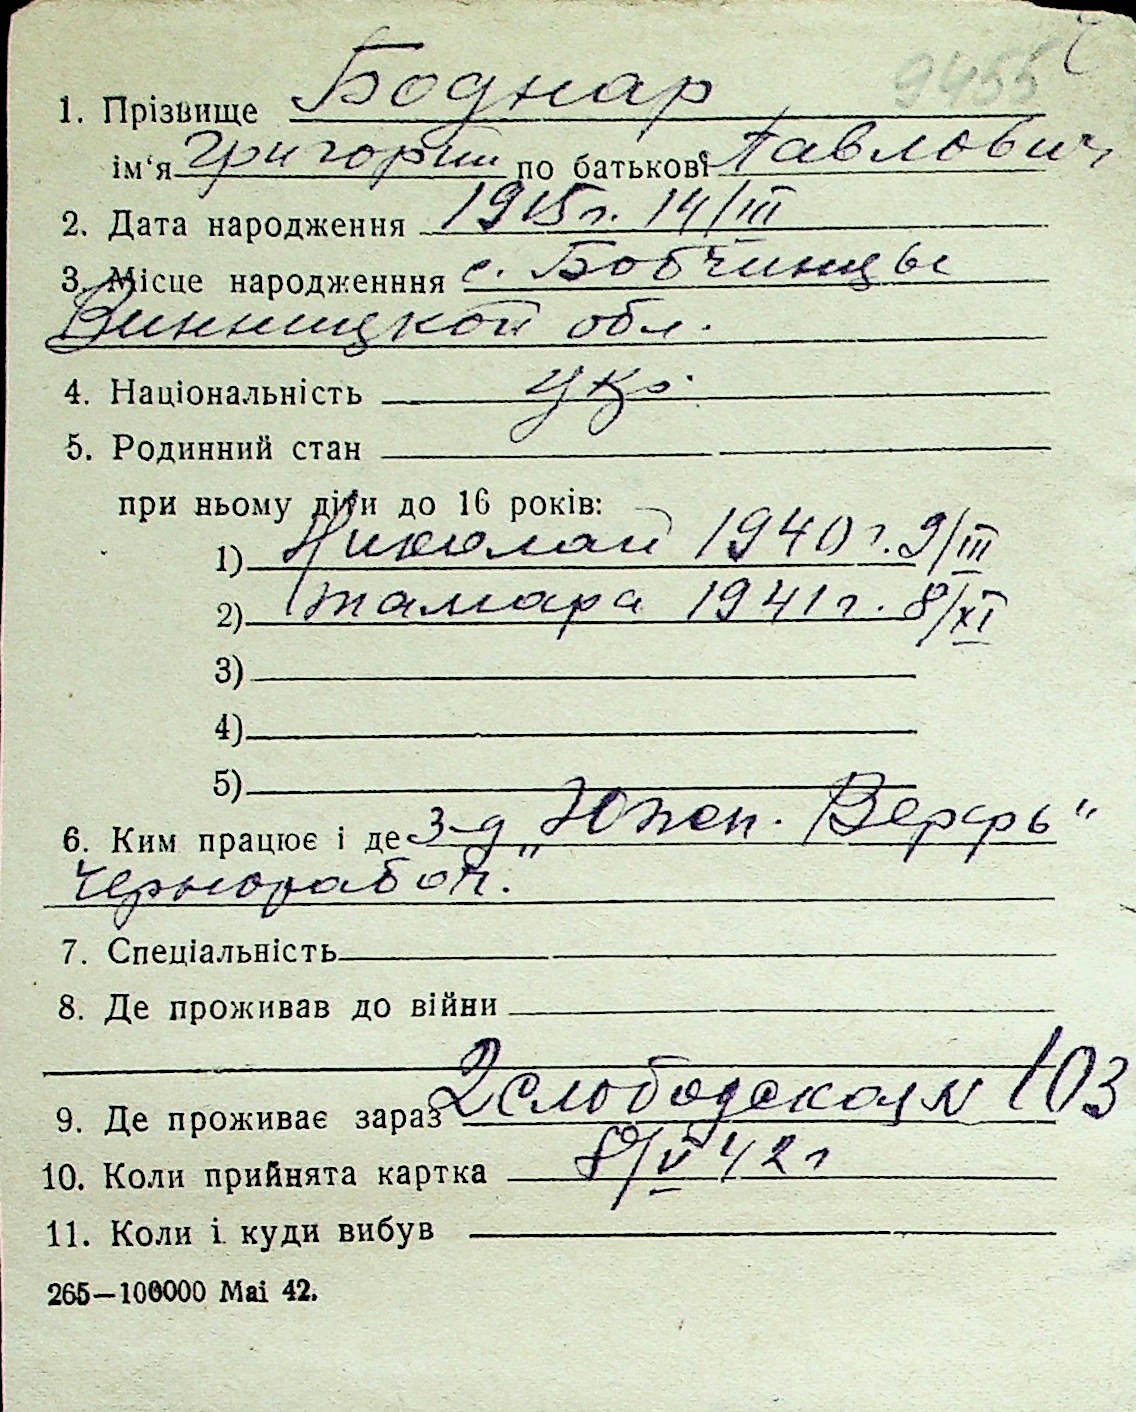 9455
1. Прізвище Боднар
ім'я Григорий по батькові Павлович
2. Дата народження 1915 г. 14/III
3. Місце народженння с. Бобчинцы
Винницкой обл.
4. Національність укр.
5. Родинний стан
при ньому діти до 16 років:
1) Николай 1940 г. 9/III
2) Тамара 1941 г. 8/XI
3)
4)
5)
6. Ким працює і де з-д „Южн. Верфь"
Чернорабоч.
7. Спеціальність
8. Де проживав до війни
9. Де проживає зараз 2 Слободская N 103
10. Коли прийнята картка 8/V 42 г
11. Коли і куди вибув
265—100000 Mai 42.